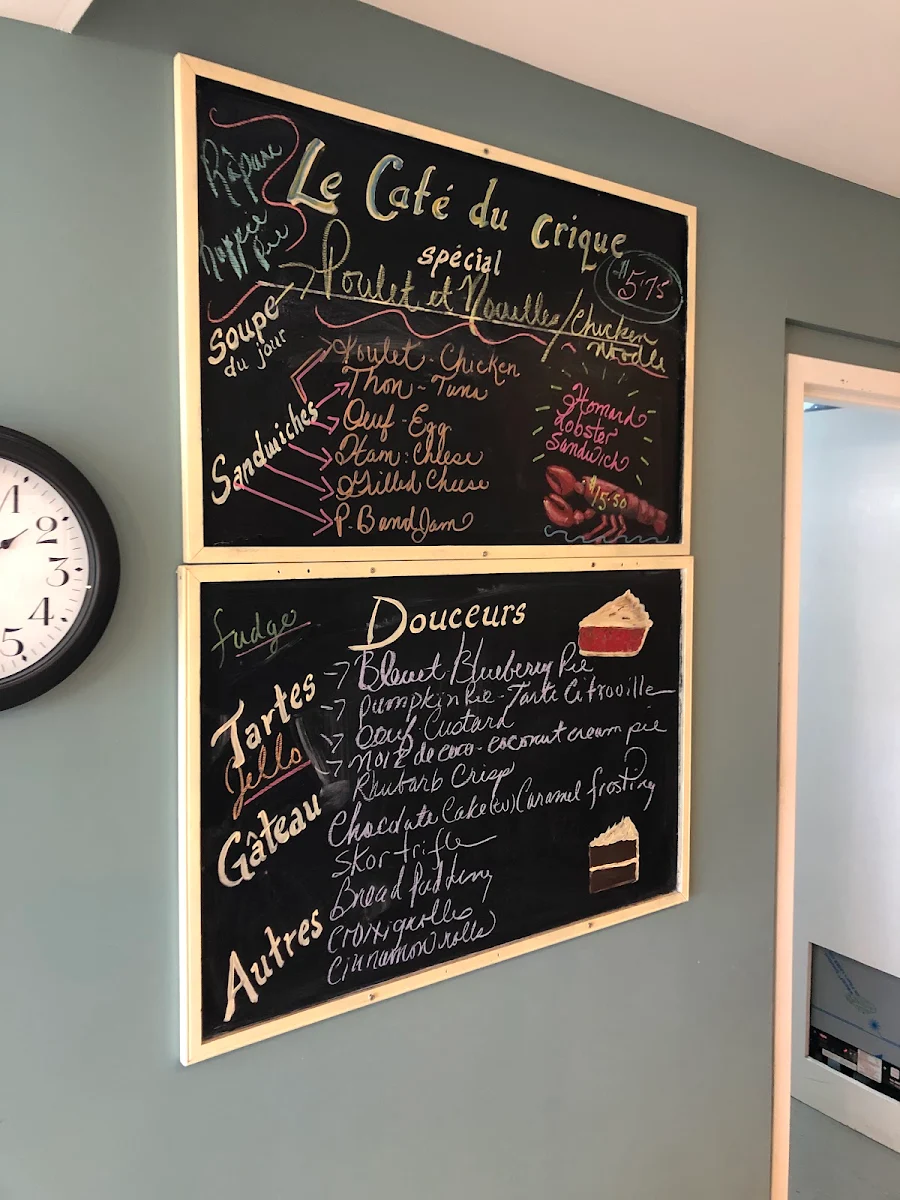 Râpure
Rappie
Pie
Le Café du crique
spécial
$5.75
Poulet et Nouilles/Chicken
Noodle
Soupe
du jour
Sandwiches
Poulet - Chicken
Thon - Tuna
Oeuf - Egg
Ham: Cheese
Grilled Cheese
P. B and Jam
Homard
Lobster
Sandwich
$15.50
Douceurs
fudge
Tartes
Bleuet Blueberry Pie
pumpkin Pie - Tarte Citrouille
Oeuf - Custard
noix de coco - coconut cream pie
Jello
Rhubarb Crisp
Gâteau
Chocolate Cake (w) Caramel frosting
Skor trifle
Autres
Bread Pudding
Croixignolles
Cinnamon rolls
1
2
3
4
5